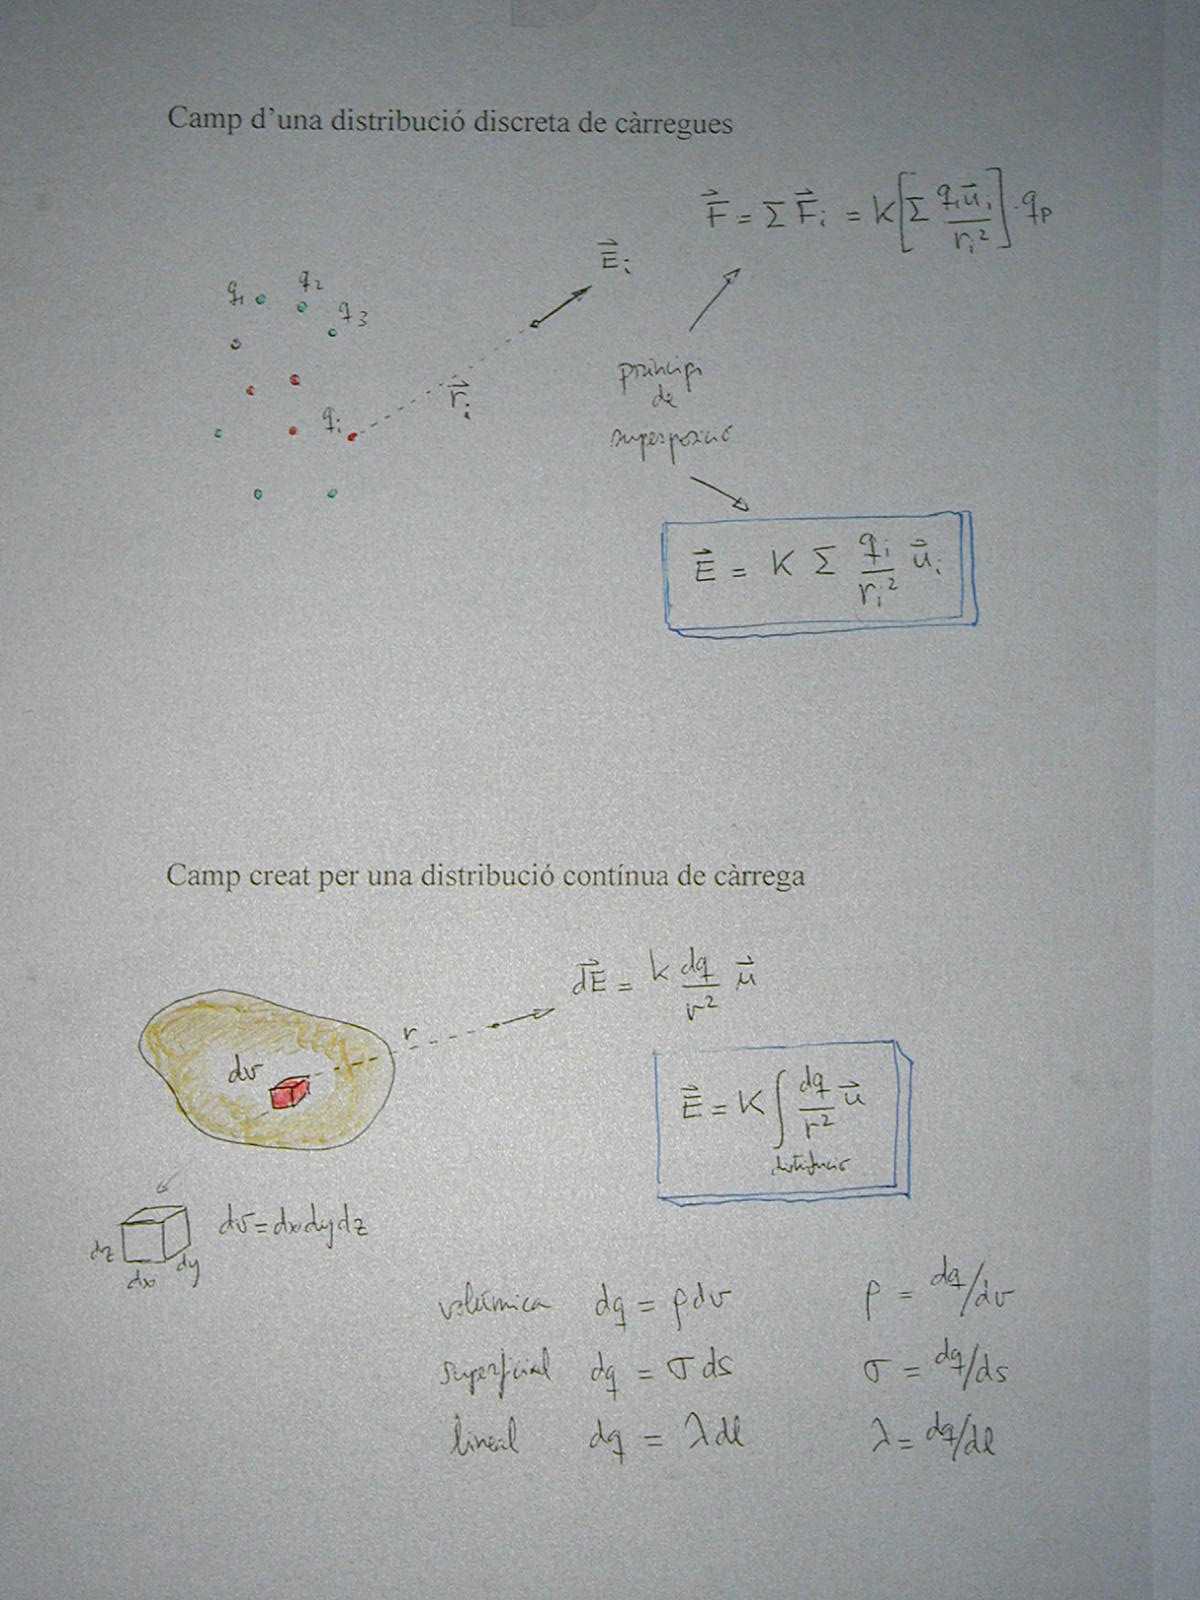 Camp d'una distribució discreta de càrregues
F⃗ = Σ F⃗ᵢ = K[Σ qᵢu⃗ᵢ/rᵢ²]·qₚ
E⃗ᵢ
q₁ q₂ q₃
r⃗ᵢ
qᵢ
principi
de
superposició
E⃗ = K Σ qᵢ/rᵢ² u⃗ᵢ
Camp creat per una distribució contínua de càrrega
dE⃗ = k dq/r² u⃗
r
dv
E⃗ = K ∫ dq/r² u⃗
distribució
dv = dx dy dz
dz
dx
dy
volúmica dq = ρ dv ρ = dq/dv
superficial dq = σ ds σ = dq/ds
lineal dq = λ dl λ = dq/dl